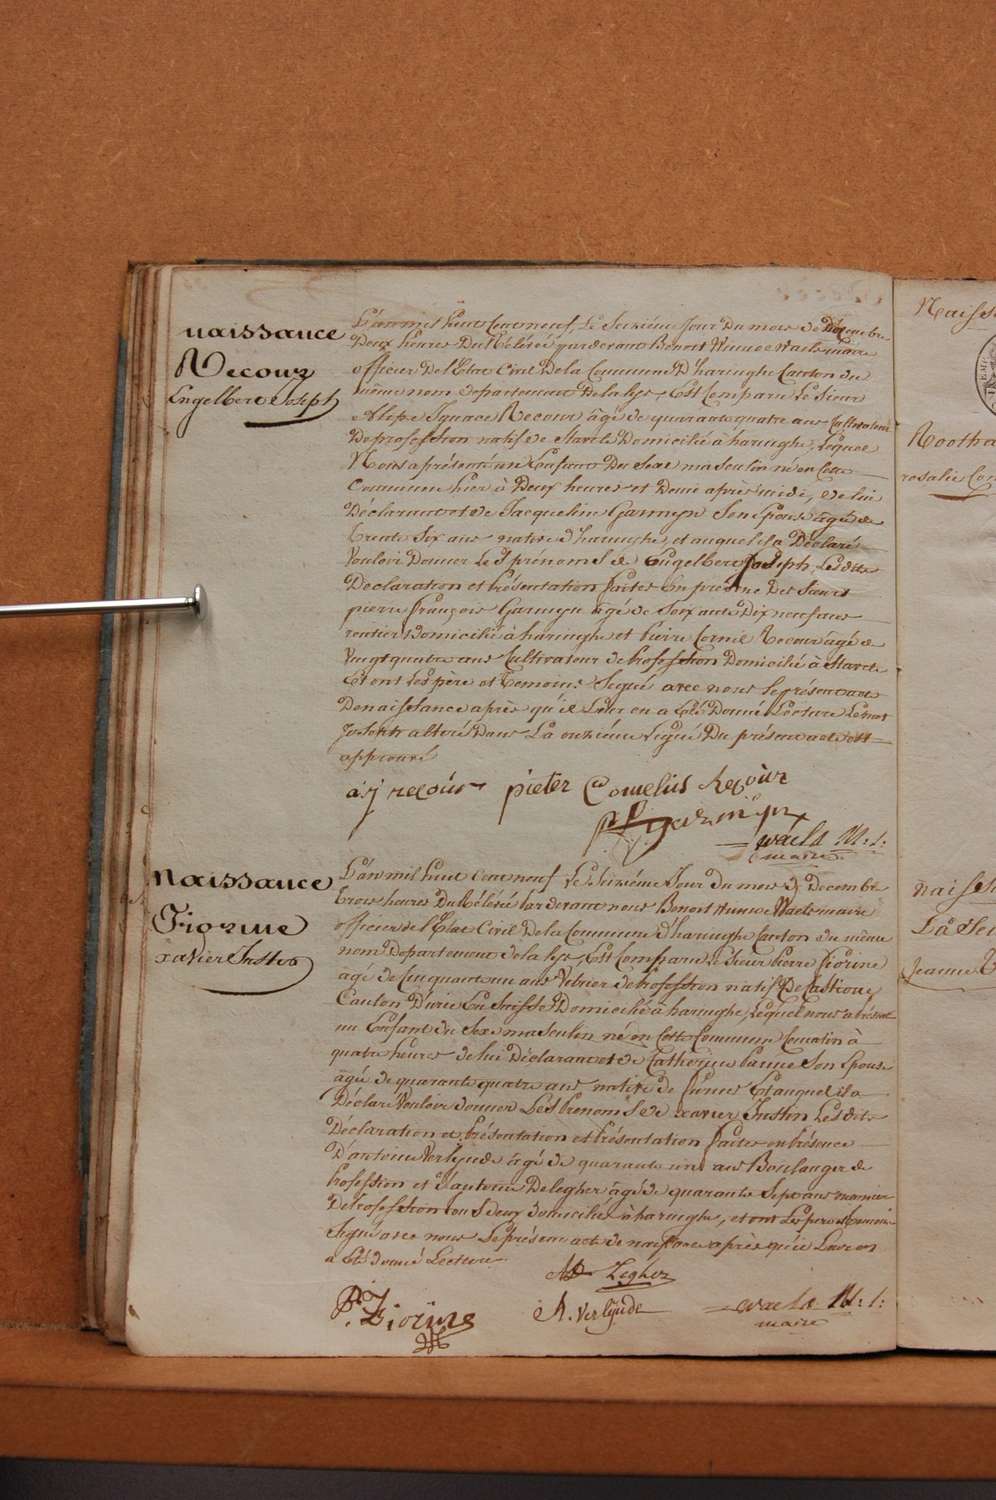 naissance
Recour
Engelbert Joseph
L'an mil huit Cent neuf, Le Seizième Jour Du mois de Décembre
Deux heures Du Rélévée pardevant Benoit Winnoc Waels maire
officier De l'Etat Civil De la Commune D'haringhe Canton du
même nom Departement De la lys Est Comparu Le Sieur
Ignace Recour âgé de quarante quatre ans Cultivateur
De profession natif de Stavele Domicilié à haringhe, Lequel
Nous a présenté un Enfant Du Sexe masculin né en Cette
Commune hier à Deux heures et Demi après midi, de lui
Déclarant et de Jacqueline Garmyn Son Epouse âgée de
trente Six ans native d'haringhe, et auquel il a Déclaré
Vouloir Donner Les prénoms de Engelbert Joseph, Les dits
Déclaration et Présentation faites En présence Des Sieurs
pierre françois Garmyn âgé de Soixante Dix neuf ans
rentier Domicilié à haringhe et Pierre Cornil Recour âgé de
Vingt quatre ans Cultivateur de Profession Domicilié à Stavele
Et ont Les père et Temoins Signé avec nous Le présent acte
De naissance après qu'il Leur en a Eté Donné Lecture Le mot
Joseph altéré Dans La onzième Ligne Du présent acte est
approuvé
a: j recour pieter Cornelius Recour
Garmyn
waels M: s:
maire
naissance
Fiorine
xavier Justin
L'an mil huit Cent neuf Le Seizième Jour du mois de Decembre
trois heures Du Rélévée Pardevant nous Benoit Winnoc Waels maire
officier de l'Etat Civil De la Commune d'haringhe Canton du même
nom Departement de la lys, Est Comparu Le Sieur Pierre fiorine
âgé de Cinquante un ans Vetrier de Profession natif De
Canton D'urie En Suisse Domicilié à haringhe, Lequel nous a Présenté
un Enfant du Sexe masculin né en Cette Commune Ce matin à
quatre heures de lui Déclarant et de Catherine Son Epouse
âgée de quarante quatre ans native de furnes Et auquel il a
Déclaré Vouloir donner Les Prénoms de xavier Justin Les dits
Déclaration et Présentation et Présentation faites en Présence
D'antoine Verlynde âgé de quarante un ans Boulanger de
Profession et d'antoine Delegher âgé de quarante Sept ans
De Profession tous deux domicilié à haringhe, et ont Les pere et temoins
Signé avec nous Le présent acte de naissance après qu'il Leur en
a Eté donné Lecture
Legher
P. J. Fiorine
A. Verlynde
waels M: s:
maire
Naiss
rosalie Con
naiss
Jeanne